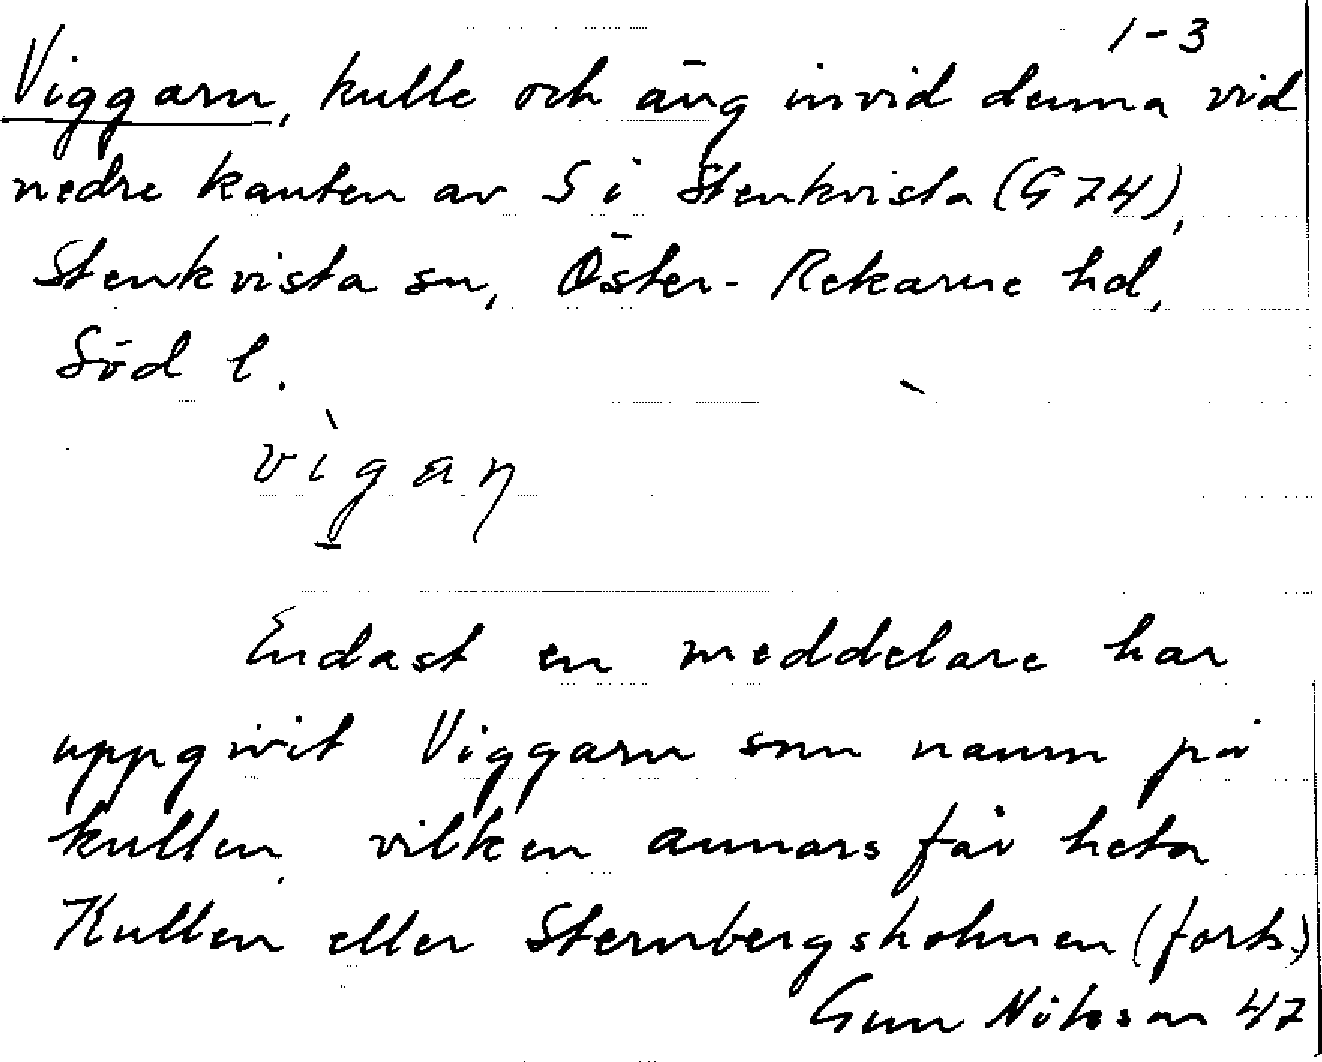 1-3
Viggarn, kulle och äng invid denna vid
nedre kanten av S i Stenkvista (G 74),
Stenkvista sn, Öster-Rekarne hd,
Söd l.
vìgaɳ
Endast en meddelare har
uppgivit Viggarn som namn på
kullen, vilken annars får heta
Kullen eller Sternbergsholmen (forts.)
Gun Nilsson 47